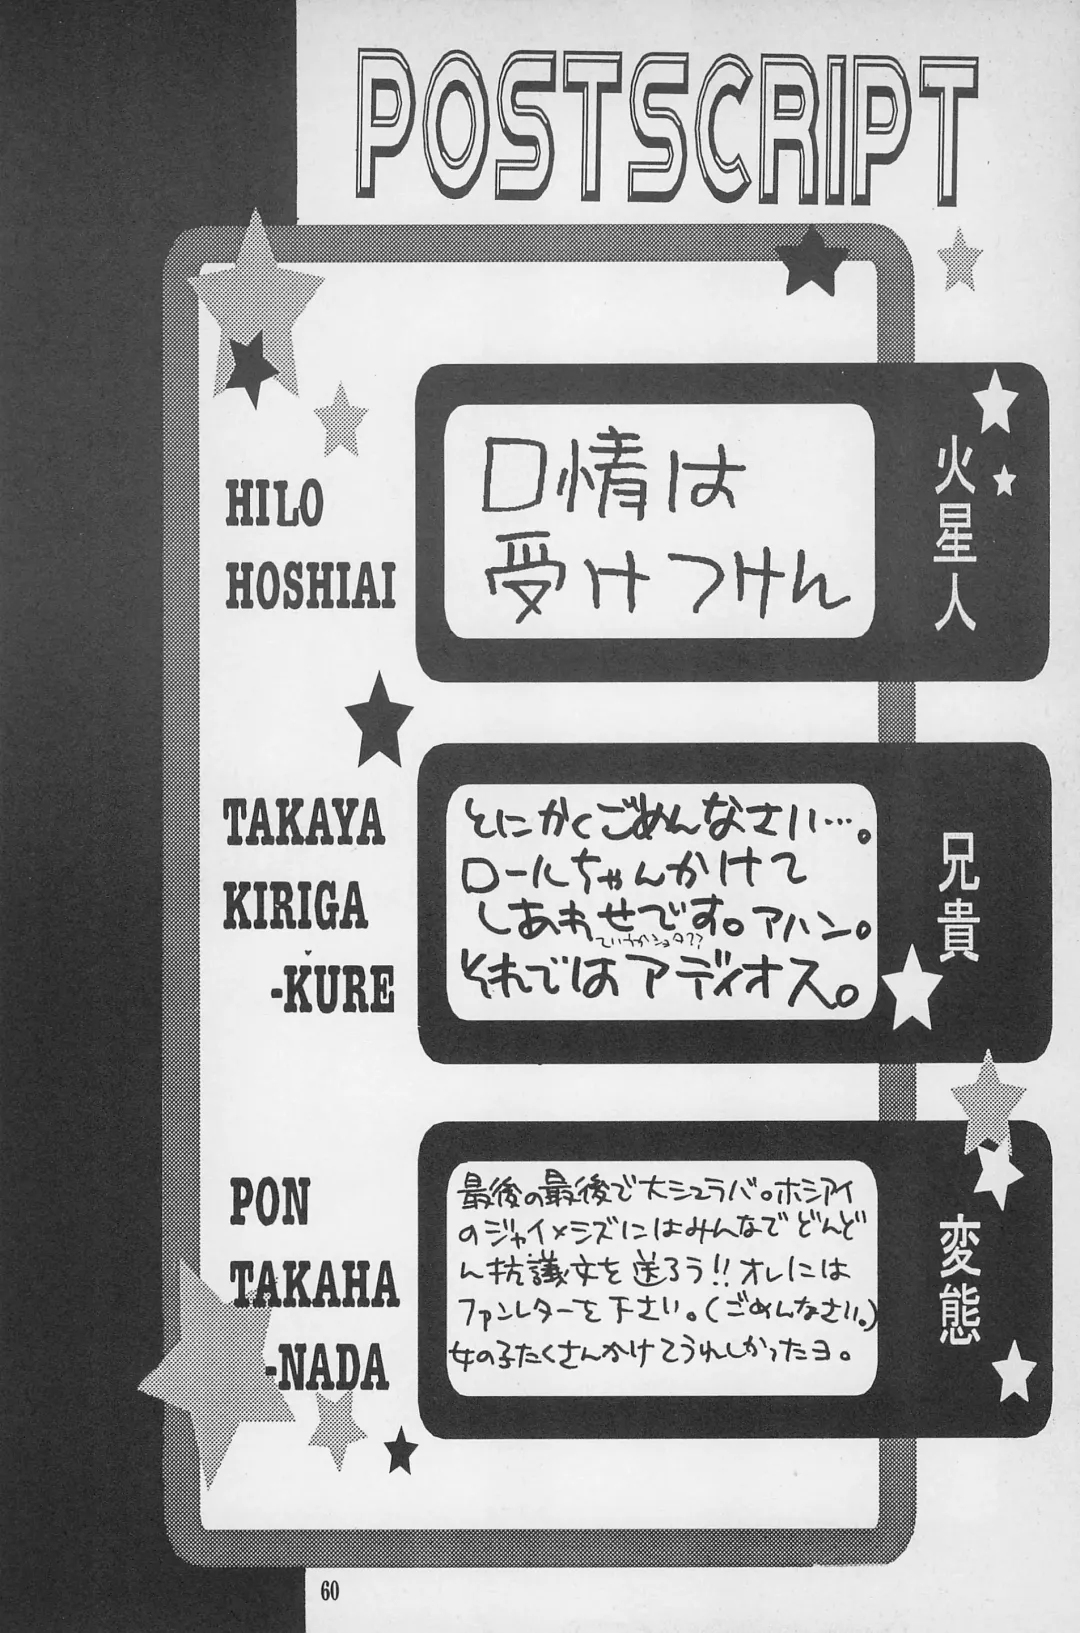 POSTSCRIPT
HILO
HOSHIAI
口情は
受けつけん
火星人
TAKAYA
KIRIGA
-KURE
とにかくごめんなさい…。
ロールちゃんかけて
しあわせです。アハン。
ていうかショタ??
それではアディオス。
兄貴
PON
TAKAHA
-NADA
最後の最後で大シュラバ。ホシアイ
のジャイ×シズにはみんなでどんど
ん抗議文を送ろう!!オレには
ファンレターを下さい。(ごめんなさい。)
女の子たくさんかけてうれしかったヨ。
変態
60